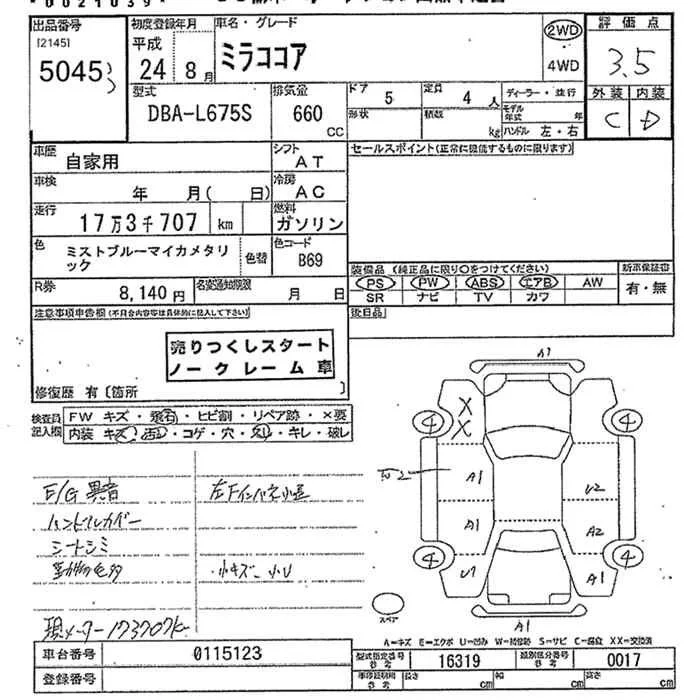 *0021039*
出品番号
[2145]
5045
初度登録年月
平成
24年8月
車名・グレード
ミラココア
2WD
4WD
評価点
3.5
外装 内装
C D
型式
DBA-L675S
排気量
660
CC
ドア
5
定員
4人
形状
積数
kg
ディーラー・並行
モデル年式 年
ハンドル 左・右
車歴
自家用
シフト
AT
セールスポイント(正常に機能するものに限ります)
車検
年 月( 日)
冷房
AC
走行
17万3千707 km
燃料
ガソリン
色
ミストブルーマイカメタリック
色替
色コード
B69
装備品 (純正品に限り○をつけてください)
PS PW ABS エアB AW
SR ナビ TV カワ
新車保証書
有・無
R券
8,140円
名変通知期限
月 日
後日品
注意事項申告欄(不具合内容等は具体的に記入して下さい)
売りつくしスタート
ノークレーム車
修復歴 有〔箇所 〕
検査員記入欄
FW キズ・飛石・ヒビ割・リペア跡・×要
内装 キズ・汚レ・コゲ・穴・スレ・キレ・破レ
E/G異音
左Fインパネ小足
ハンドルカバー
シートシミ
動物毛多
小キズ 小U
現メーター173707k
A1
X
X
4
4
A1
U2
A1
A2
4
4
U7
A1
A1
スペア
A=キズ E=エクボ U=凹み W=補修跡 S=サビ C=腐食 XX=交換済
車台番号
0115123
型式指定番号
参考
16319
類別区分番号
参考
0017
登録番号
車車証明用
参考
長さ cm
幅 cm
高さ cm